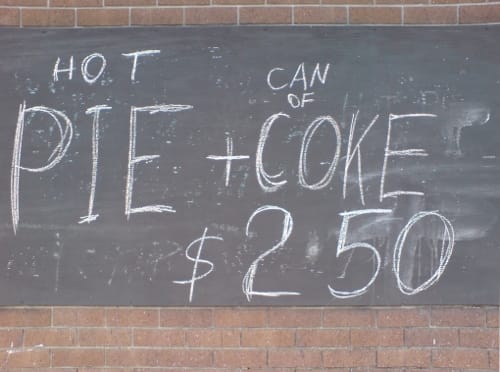 HOT
PIE + CAN OF COKE
$250